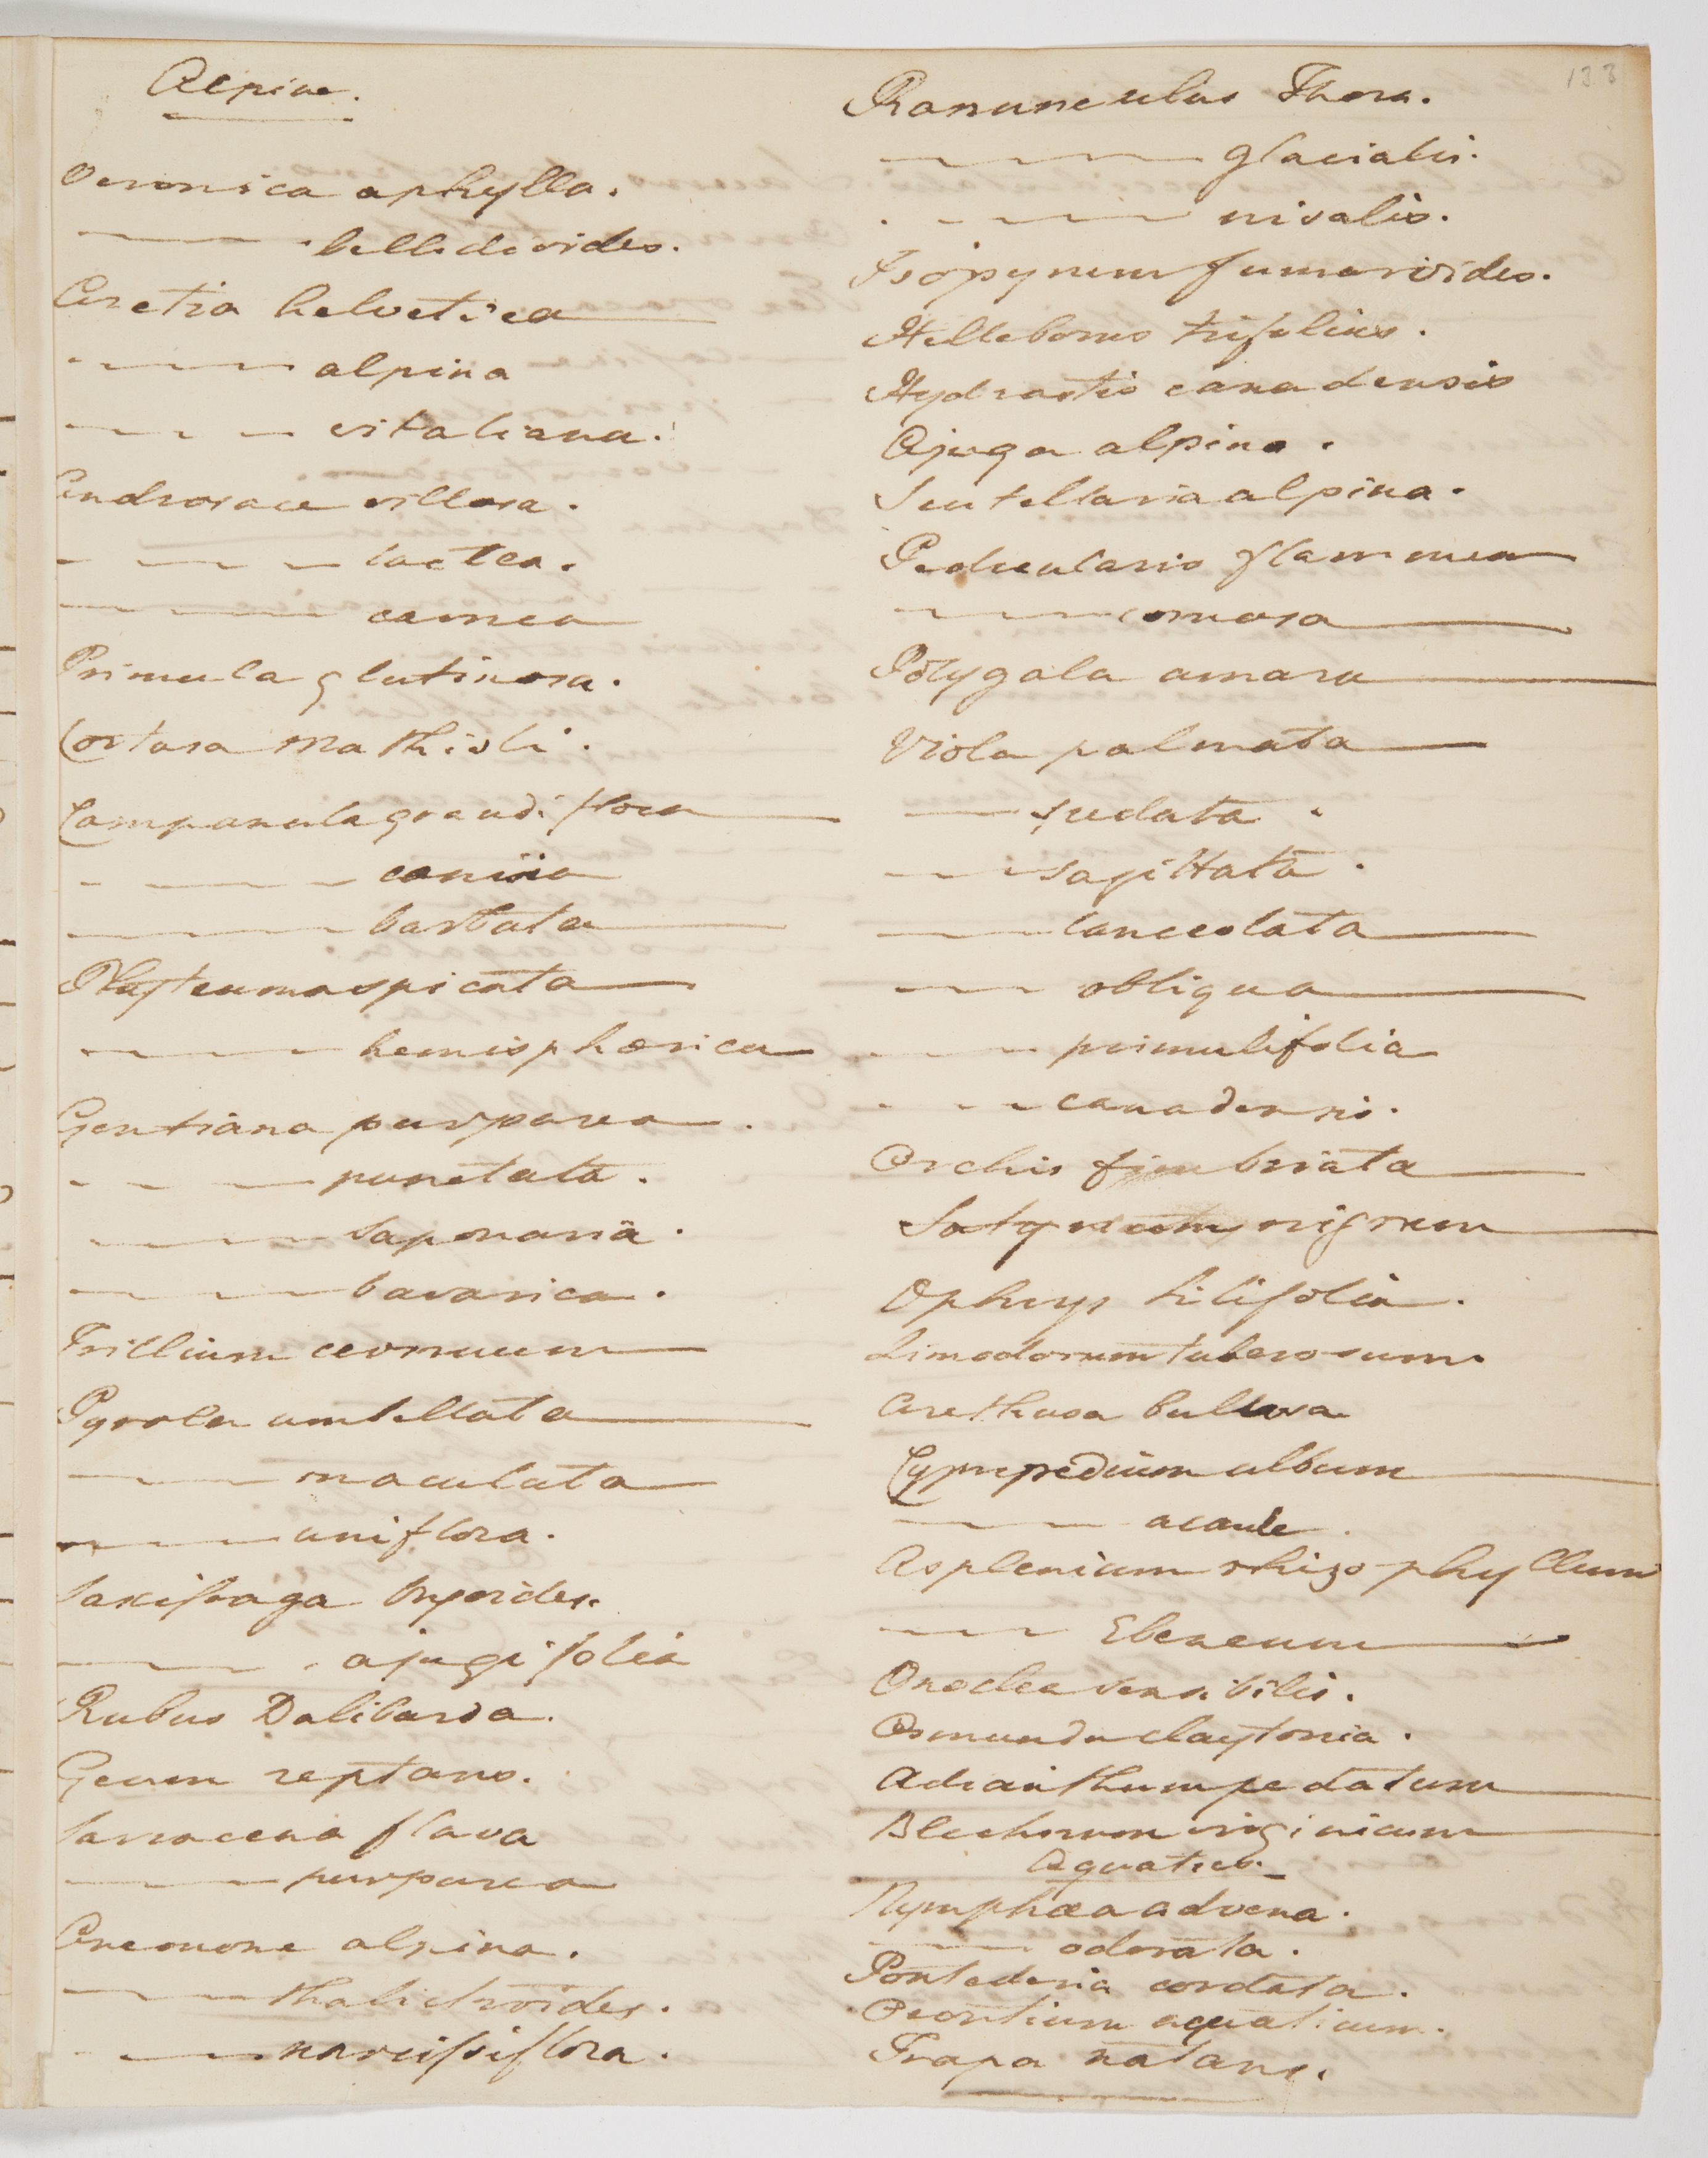 Alpine.
Veronica aphylla.
——— bellidioides.
Aretia helvetica
——— alpina
——— vitaliana.
Androsace villosa.
——— lactea.
——— carnea
Primula glutinosa.
Cortusa Mathioli.
Campanula grandiflora
———
——— barbata
Phyteuma spicata
——— hemisphærica
Gentiana purpurea.
——— punctata.
——— saponaria.
——— bavarica.
Trillium cernuum
Pyrola umbellata
——— maculata
——— uniflora.
Saxifraga bryoides.
——— ajugifolia
Rubus Dalibarda.
Geum reptans.
Sarracena flava
——— purpurea
Anemone alpina.
——— thalictroides.
——— narcissiflora.
133
Ranunculus Thora.
——— glacialis.
——— nivalis.
Isopyrum fumarioides.
Helleborus trifolius.
Hydrastis canadensis
Ajuga alpina.
Scutellaria alpina.
Pedicularis flammea
——— comosa
Polygala amara
Viola palmata
——— pedata.
——— sagittata.
——— lanceolata
——— obliqua
——— primulifolia
——— canadensis.
Orchis fimbriata
Satyrium nigrum
Ophrys lilifolia.
Limodorum tuberosum.
Arethusa bulbosa
Cypripedium album
——— acaule.
Asplenium rhizophyllum
——— Ebeneum
Onoclea sensibilis.
Osmunda claytonia.
Adianthum pedatum
Blechnum virginicum
Aquatics.
Nymphæa advena.
——— odorata.
Pontederia cordata.
Orontium aquaticum.
Trapa natans.